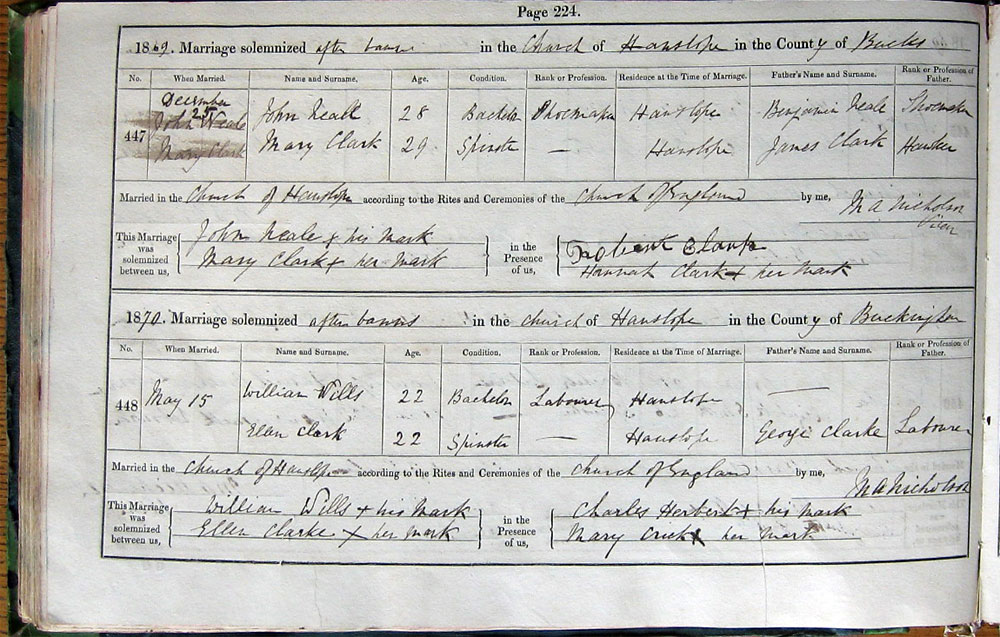 Page 224.
1869. Marriage solemnized after banns in the Church of Hanslope in the County of Bucks
No. When Married. Name and Surname. Age. Condition. Rank or Profession. Residence at the Time of Marriage. Father's Name and Surname. Rank or Profession of Father.
447 December 25 John Neale 28 Bachelor Shoemaker Hanslope Benjamin Neale Shoemaker
John Neale
Mary Clark Mary Clark 29 Spinster — Hanslope James Clark Hawker
Married in the Church of Hanslope according to the Rites and Ceremonies of the Church of England by me, M A Nicholson Vicar
This Marriage was solemnized between us, John Neale x his mark in the Presence of us, Robert Clark
Mary Clark x her mark Hannah Clark x her mark
1870. Marriage solemnized after banns in the church of Hanslope in the County of Buckingham
No. When Married. Name and Surname. Age. Condition. Rank or Profession. Residence at the Time of Marriage. Father's Name and Surname. Rank or Profession of Father.
448 May 15 William Wills 22 Bachelor Labourer Hanslope —
Ellen Clark 22 Spinster — Hanslope George Clarke Labourer
Married in the Church of Hanslope according to the Rites and Ceremonies of the Church of England by me, M A Nicholson
This Marriage was solemnized between us, William Wills x his mark in the Presence of us, Charles Herbert x his mark
Ellen Clarke x her mark Mary Crick x her mark